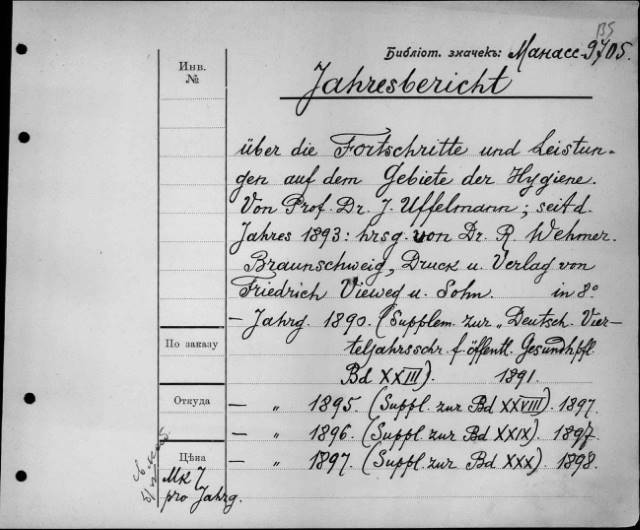 BS
Библіот. значекъ: Манасс-9705.
Инв.
№
Jahresbericht
über die Fortschritte und Leistun-
gen auf dem Gebiete der Hygiene.
Von Prof. Dr. J. Uffelmann; seit d.
Jahres 1893: hrsg. von Dr. R. Wehmer.
Braunschweig, Druck u. Verlag von
Friedrich Vieweg u. Sohn. in 8º
— Jahrg. 1890. (Supplem. zur „Deutsch. Vier-
teljahrsschr. f. öffentl. Gesundhpfl.
Bd XXIII). 1891.
По заказу
Откуда
— „ 1895. (Suppl. zur Bd XXVIII). 1897.
— „ 1896. (Suppl. zur Bd XXIX). 1897.
— „ 1897. (Suppl. zur Bd XXX). 1898.
Цѣна
Mk 7
pro Jahrg.